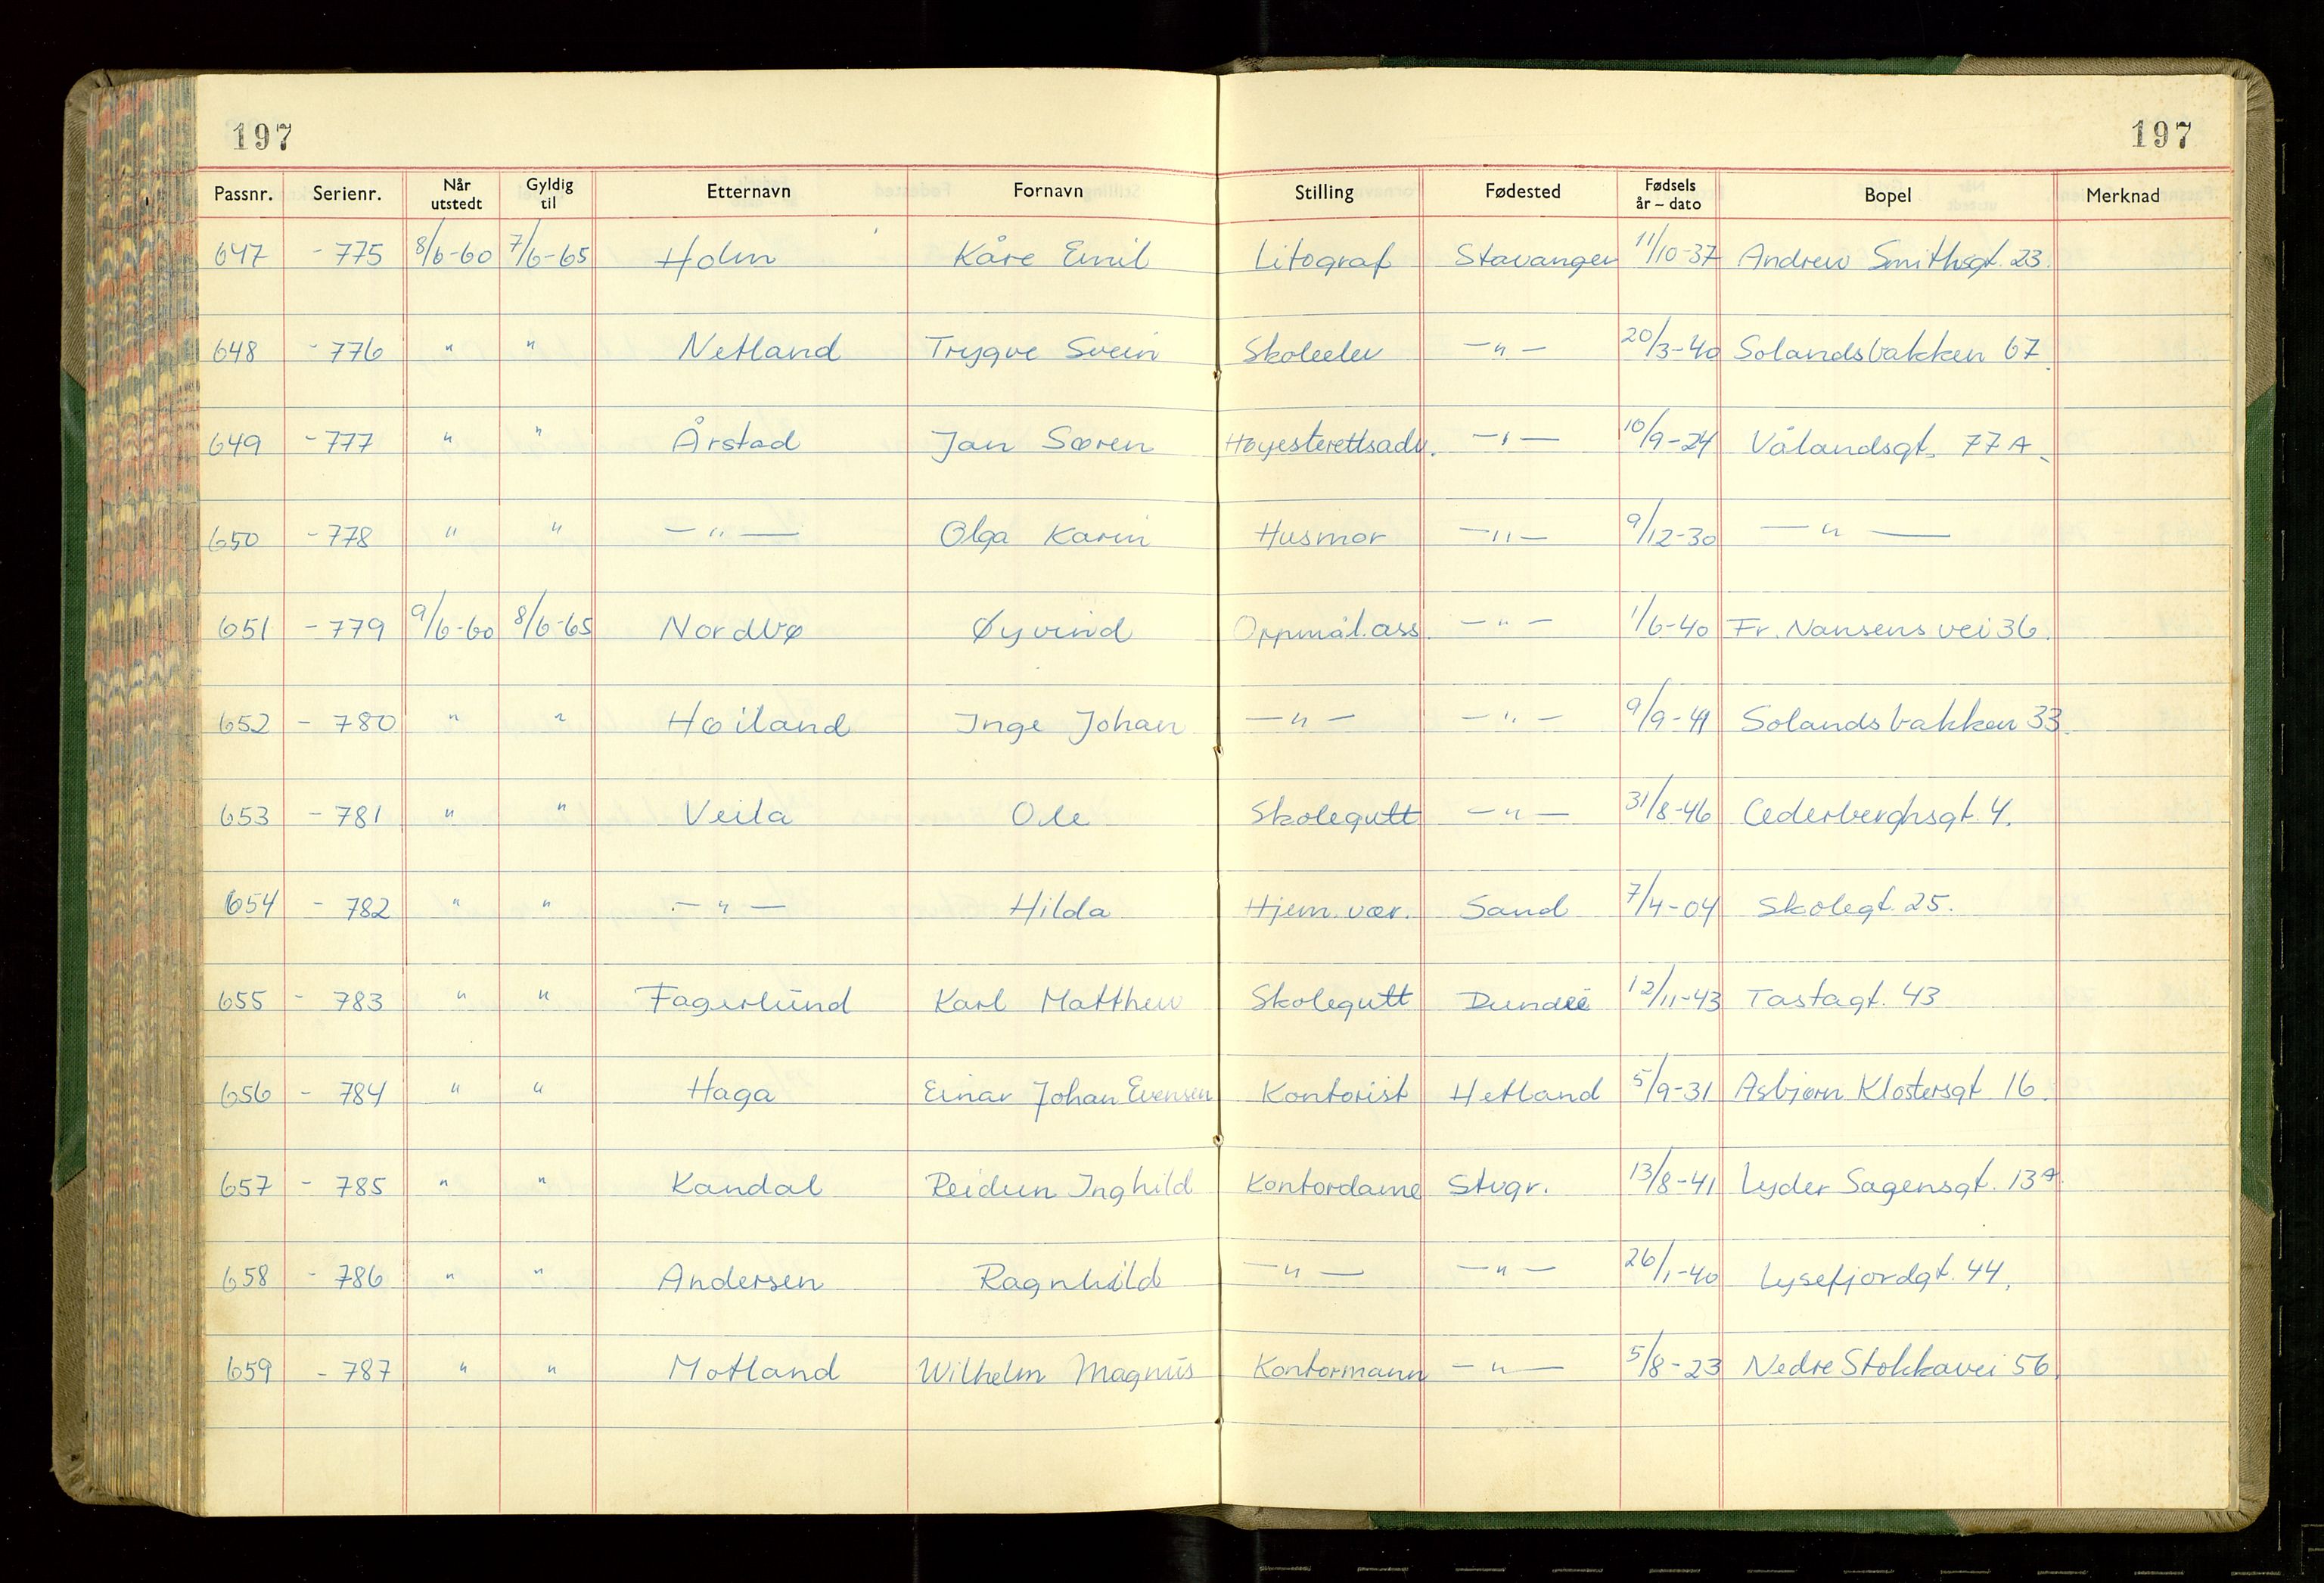 197 197
Passnr. Serienr. Når utstedt Gyldig til Etternavn Fornavn Stilling Fødested Fødsels år – dato Bopel Merknad
647 - 775 8/6-60 7/6-65 Holm Kåre Emil Litograf Stavanger 11/10-37 Andrew Smithsgt. 23.
648 - 776 " " Netland Trygve Svein Skoleelev — " — 20/3-40 Solandsbakken 67.
649 - 777 " " Årstad Jan Søren Høyesterettsadv. — " — 10/9-24 Vålandsgt. 77 A.
650 - 778 " " — " — Olga Karin Husmor — " — 9/12-30 — " —
651 - 779 9/6-60 8/6-65 Nordbø Øyvind Oppmål.ass. — " — 1/6-40 Fr. Nansens vei 36.
652 - 780 " " Høiland Inge Johan — " — — " — 9/9-41 Solandsbakken 33.
653 - 781 " " Veila Ole Skolegutt — " — 31/8-46 Cederberghsgt. 4.
654 - 782 " " — " — Hilda Hjem. vær. Sand 7/4-04 Skolegt. 25.
655 - 783 " " Fagerlund Karl Matthew Skolegutt Dundee 12/11-43 Tastagt. 43
656 - 784 " " Haga Einar Johan Evensen Kontorist Hetland 5/9-31 Asbjørn Klostersgt 16.
657 - 785 " " Kandal Reidun Inghild Kontordame Stvgr. 13/8-41 Lyder Sagensgt. 13A.
658 - 786 " " Andersen Ragnhild — " — — " — 26/1-40 Lysefjordgt. 44.
659 - 787 " " Motland Wilhelm Magnus Kontormann — " — 5/8-23 Nedre Stokkavei 56.